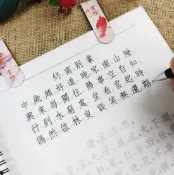 終南別業
中歲頗好道晚家南山陲
興來每獨往勝事空自知
行到水窮處坐看雲起時
偶然值林叟談笑無還期